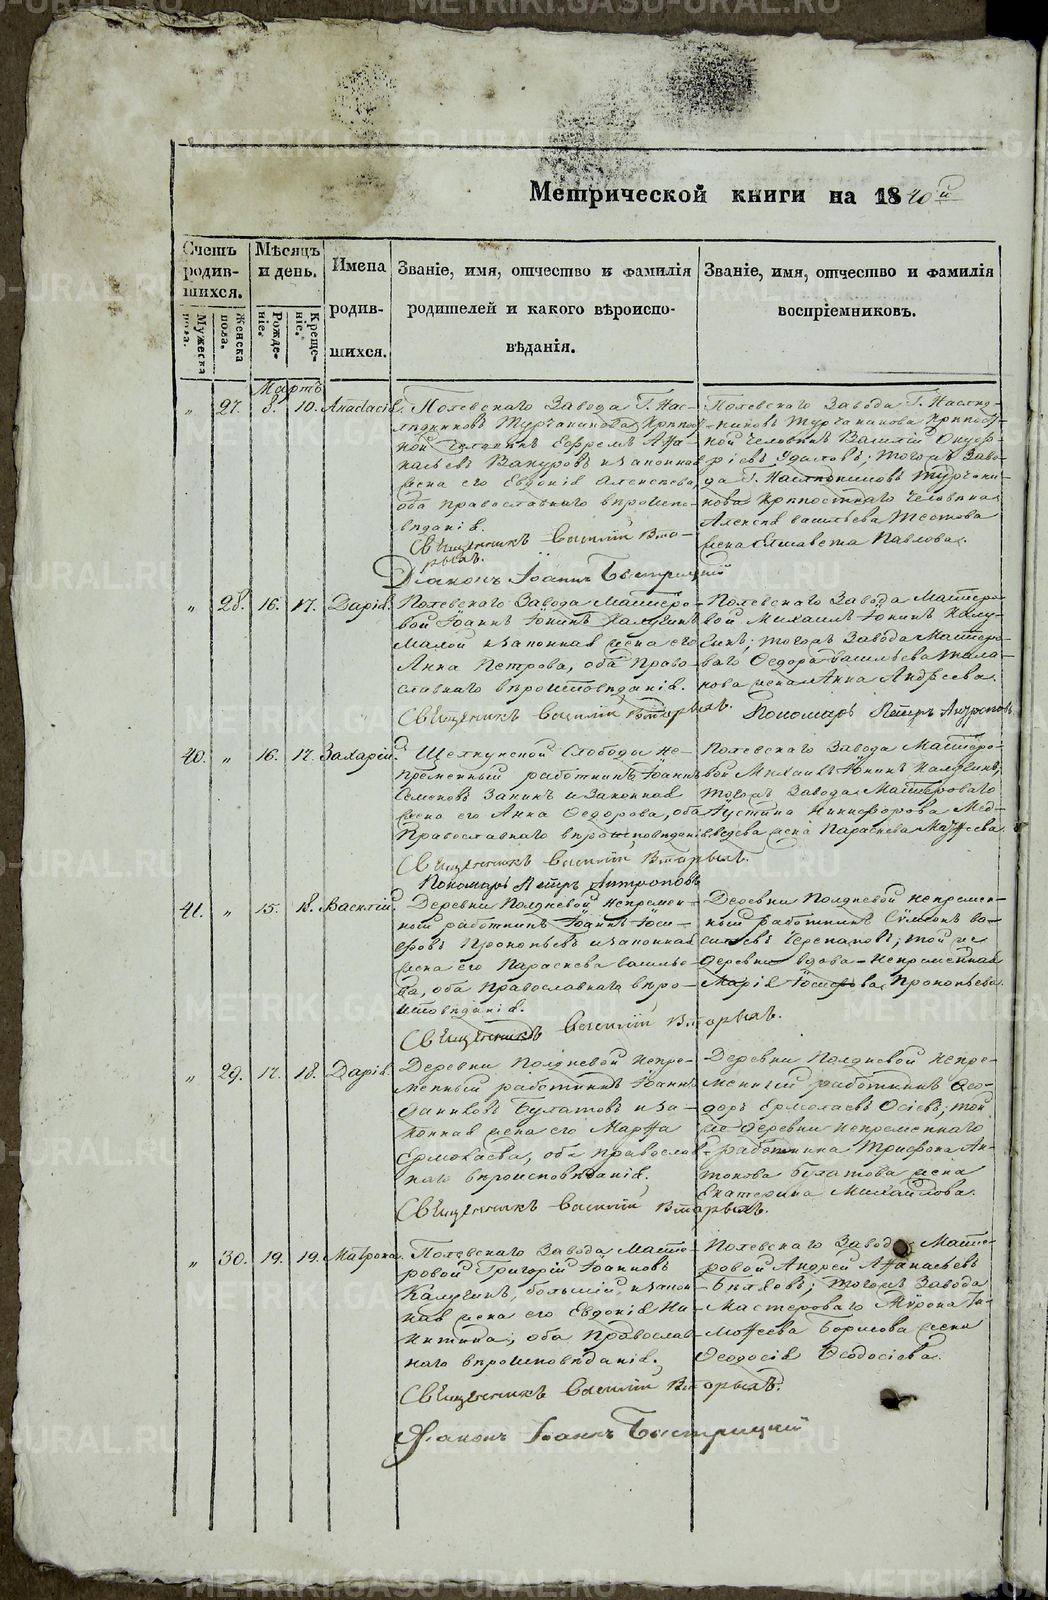 Метрической книги на 1840й
Счетъ родив-шихся.
Мужеска пола.
Женска пола.
Мѣсяцъ и день.
Рожде-ніе.
Креще-ніе.
Имена родив-шихся.
Званіе, имя, отчество и фамилія
родителей и какого вѣроиспо-
вѣданія.
Званіе, имя, отчество и фамилія
воспріемниковъ.
Мартъ
" 27. 8. 10. Анастасія.
Полевскаго Завода Г. Нас-
лѣдниковъ Турчанинова Крѣпос
ной Человѣкъ Ефремъ Афа-
насьевъ Вакуровъ и законная
жена его Евдокія Алексѣева
оба православнаго вѣроиспо-
вѣданія.
Священникъ Василій Вто-
рыхъ.
Діаконъ Іоаннъ Быстрицкій
Полевскаго Завода Г. Наслѣд-
никовъ Турчанинова Крѣпост-
ной Человѣкъ Василій Онуф-
ріевъ Удаловъ; тогожъ Заво-
да Г. Наслѣдниковъ Турчани-
нова Крѣпостнаго Человѣка
Алексѣя Васильева
жена Елисавета Павлова.
" 28. 16. 17. Дарія.
Полевскаго Завода Мастеро-
вой Іоаннъ Іонинъ Калугинъ
малой и законная жена его
Анна Петрова, оба Право-
славнаго вѣроисповѣданія.
Священникъ Василій Вторыхъ.
Полевскаго Завода Мастеро-
вой Михаилъ Іонинъ Калу-
гинъ; тогожъ Завода Мастеро-
ваго Ѳедора Васильева
жена Анна Андреева.
Пономарь Петръ Антроповъ
40. " 16. 17. Захарій.
Щелкунской Слободы не-
премѣнный работникъ Іоаннъ
Семеновъ Занинъ и Законная
жена его Анна Ѳедорова, оба
Православнаго вѣроисповѣданія
Священникъ Василій Вторыхъ.
Пономарь Петръ Антроповъ
Полевскаго Завода Мастеро-
вой Михаилъ Іонинъ Калугинъ;
тогожъ Завода Мастероваго
Іустина Никифорова Мед-
вѣдева жена Параскева Матфеева.
41. " 15. 18. Василій.
Деревни Полдневой непремѣн-
ной работникъ Іоаннъ Іоси-
фовъ Прокопьевъ и законная
жена его Параскева Василье-
ва, оба Православнаго вѣро-
исповѣданія.
Священникъ Василій Вторыхъ.
Деревни Полдневой непремѣн-
ный работникъ Сѵмеонъ Ва-
сильевъ Черепановъ; той же
деревни вдова непремѣнная
Марія Іосифова Прокопьева.
" 29. 17. 18. Дарія.
Деревни Полдневой непре-
мѣнный работникъ Іоаннъ
Даниловъ Булатовъ и за-
конная жена его Марѳа
Ермолаева, оба православ-
наго вѣроисповѣданія.
Священникъ Василій Вторыхъ.
Деревни Полдневой непре-
мѣнный работникъ Ѳео-
доръ Ермолаевъ Осіевъ; той
же деревни непремѣннаго
работника Трифона Ан-
тонова Булатова жена
Екатерина Михайлова.
" 30. 19. 19. Матрона.
Полевскаго Завода Масте-
ровой Григорій Іоанновъ
Калугинъ, большій, и закон-
ная жена его Евдокія Ни-
китина; оба Православ-
наго вѣроисповѣданія.
Священникъ Василій Вторыхъ.
Діаконъ Іоаннъ Быстрицкій
Полевскаго Завода Масте-
ровой Андрей Афанасьевъ
Бѣляковъ; тогожъ Завода
Мастероваго Мѵрона Ти-
моѳеева Борисова жена
Ѳеодосія Ѳеодосіева.
METRIKI.GASO-URAL.RU